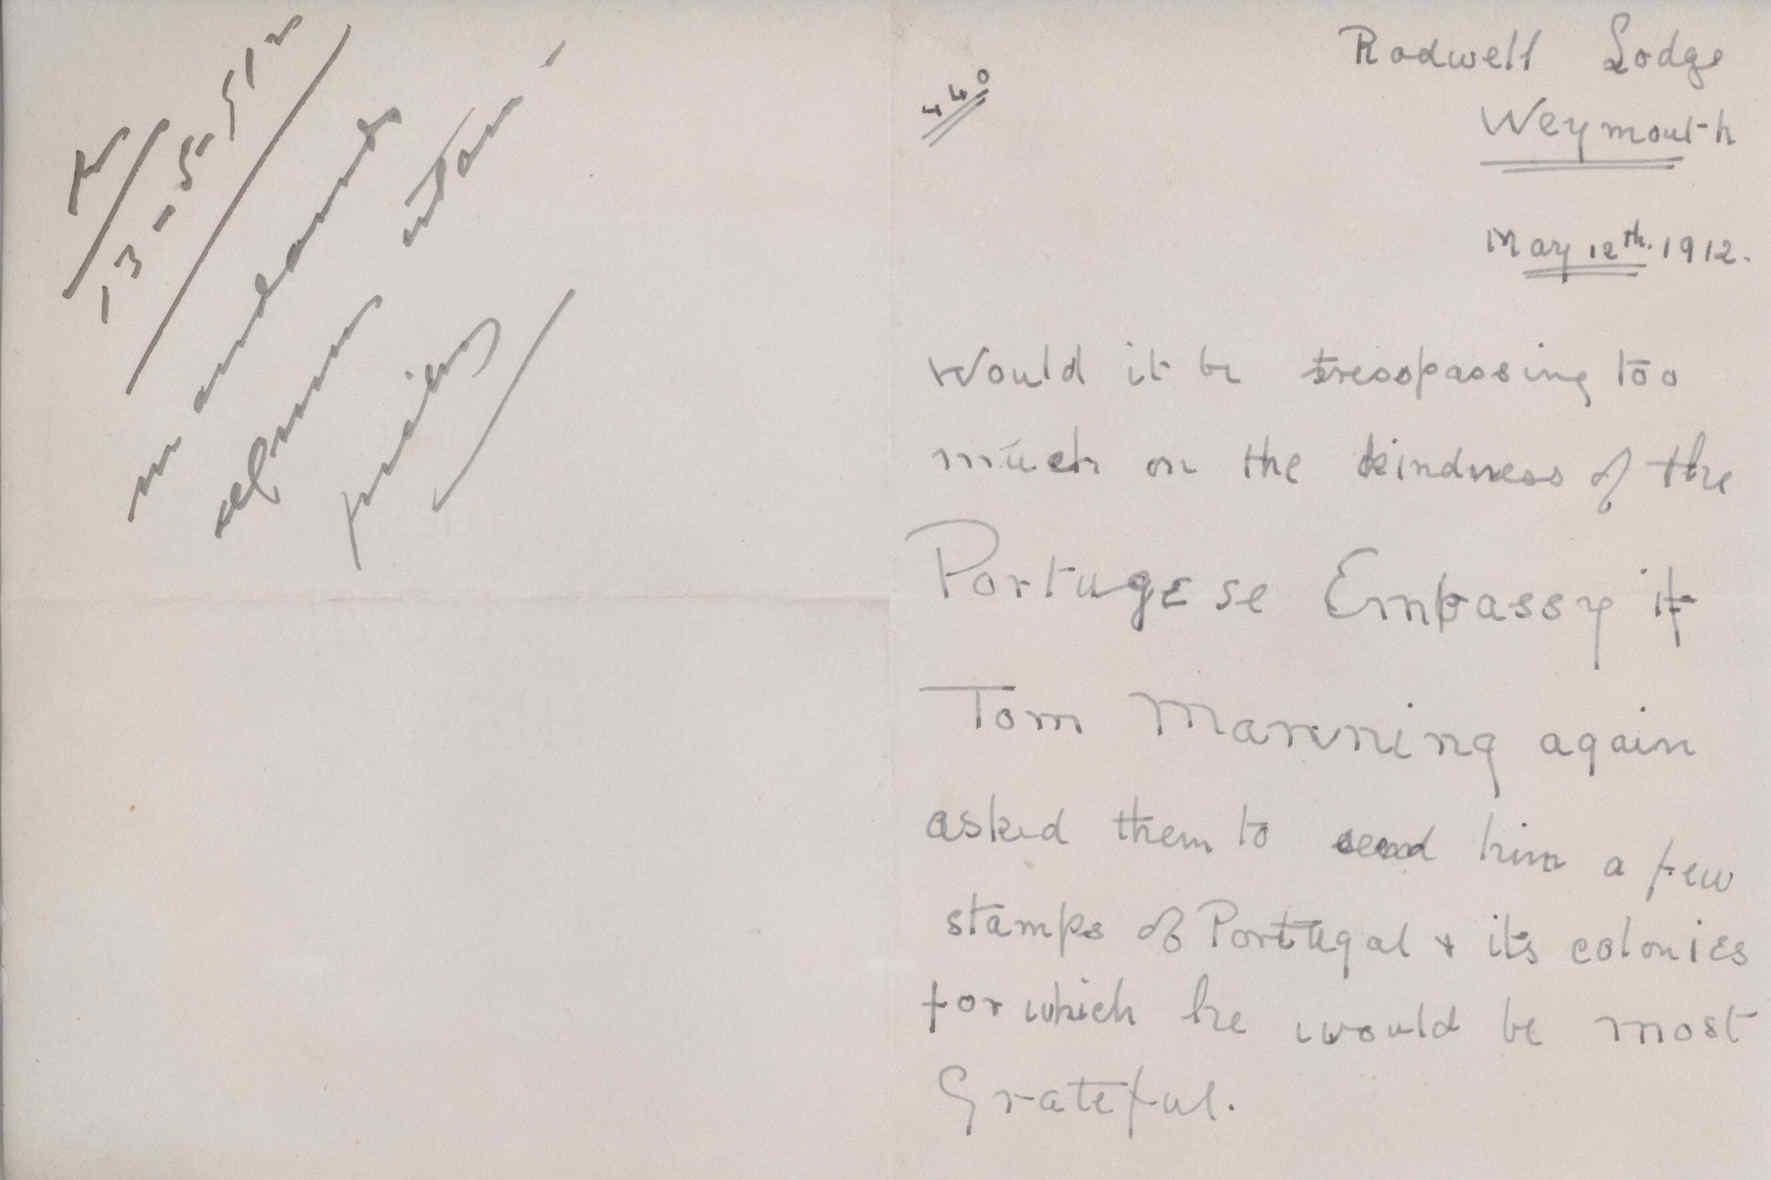 R
13-5-912
440
Rodwell Lodge
Weymouth
May 12th. 1912.
Would it be tresspassing too
much on the kindness of the
Portugese Embassy if
Tom Manning again
asked them to send him a few
stamps of Portugal & its colonies
for which he would be most
Grateful.